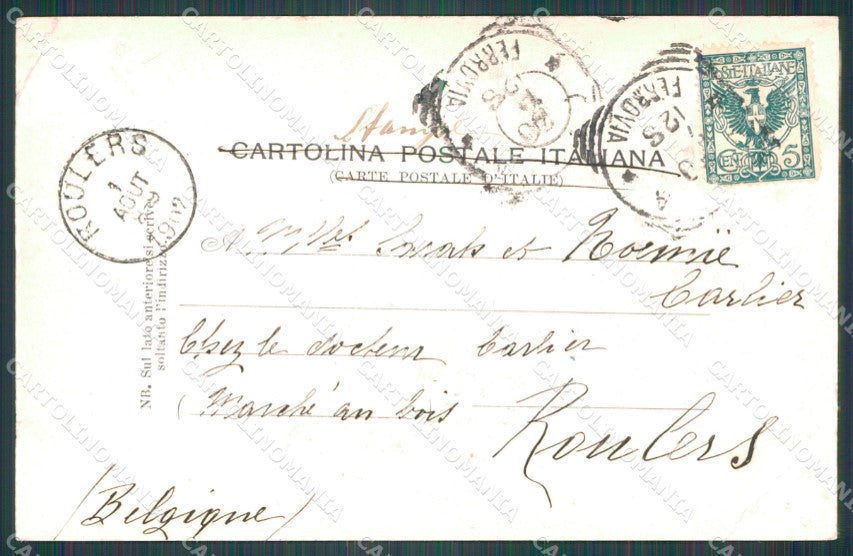 POSTE ITALIANE
CENT. 5
FERROVIA
FERROVIA
12 S
CARTOLINA POSTALE ITALIANA
(CARTE POSTALE D'ITALIE)
ROULERS
1
AOUT
8-9
1902
NB. Sul lato anteriore si scrive
soltanto l'indirizzo
A MMlles Sarah et Noemië
Carlier
Chez le docteur Carlier
(Marché au bois
Roulers
(Belgique)
CARTOLINOMANIA